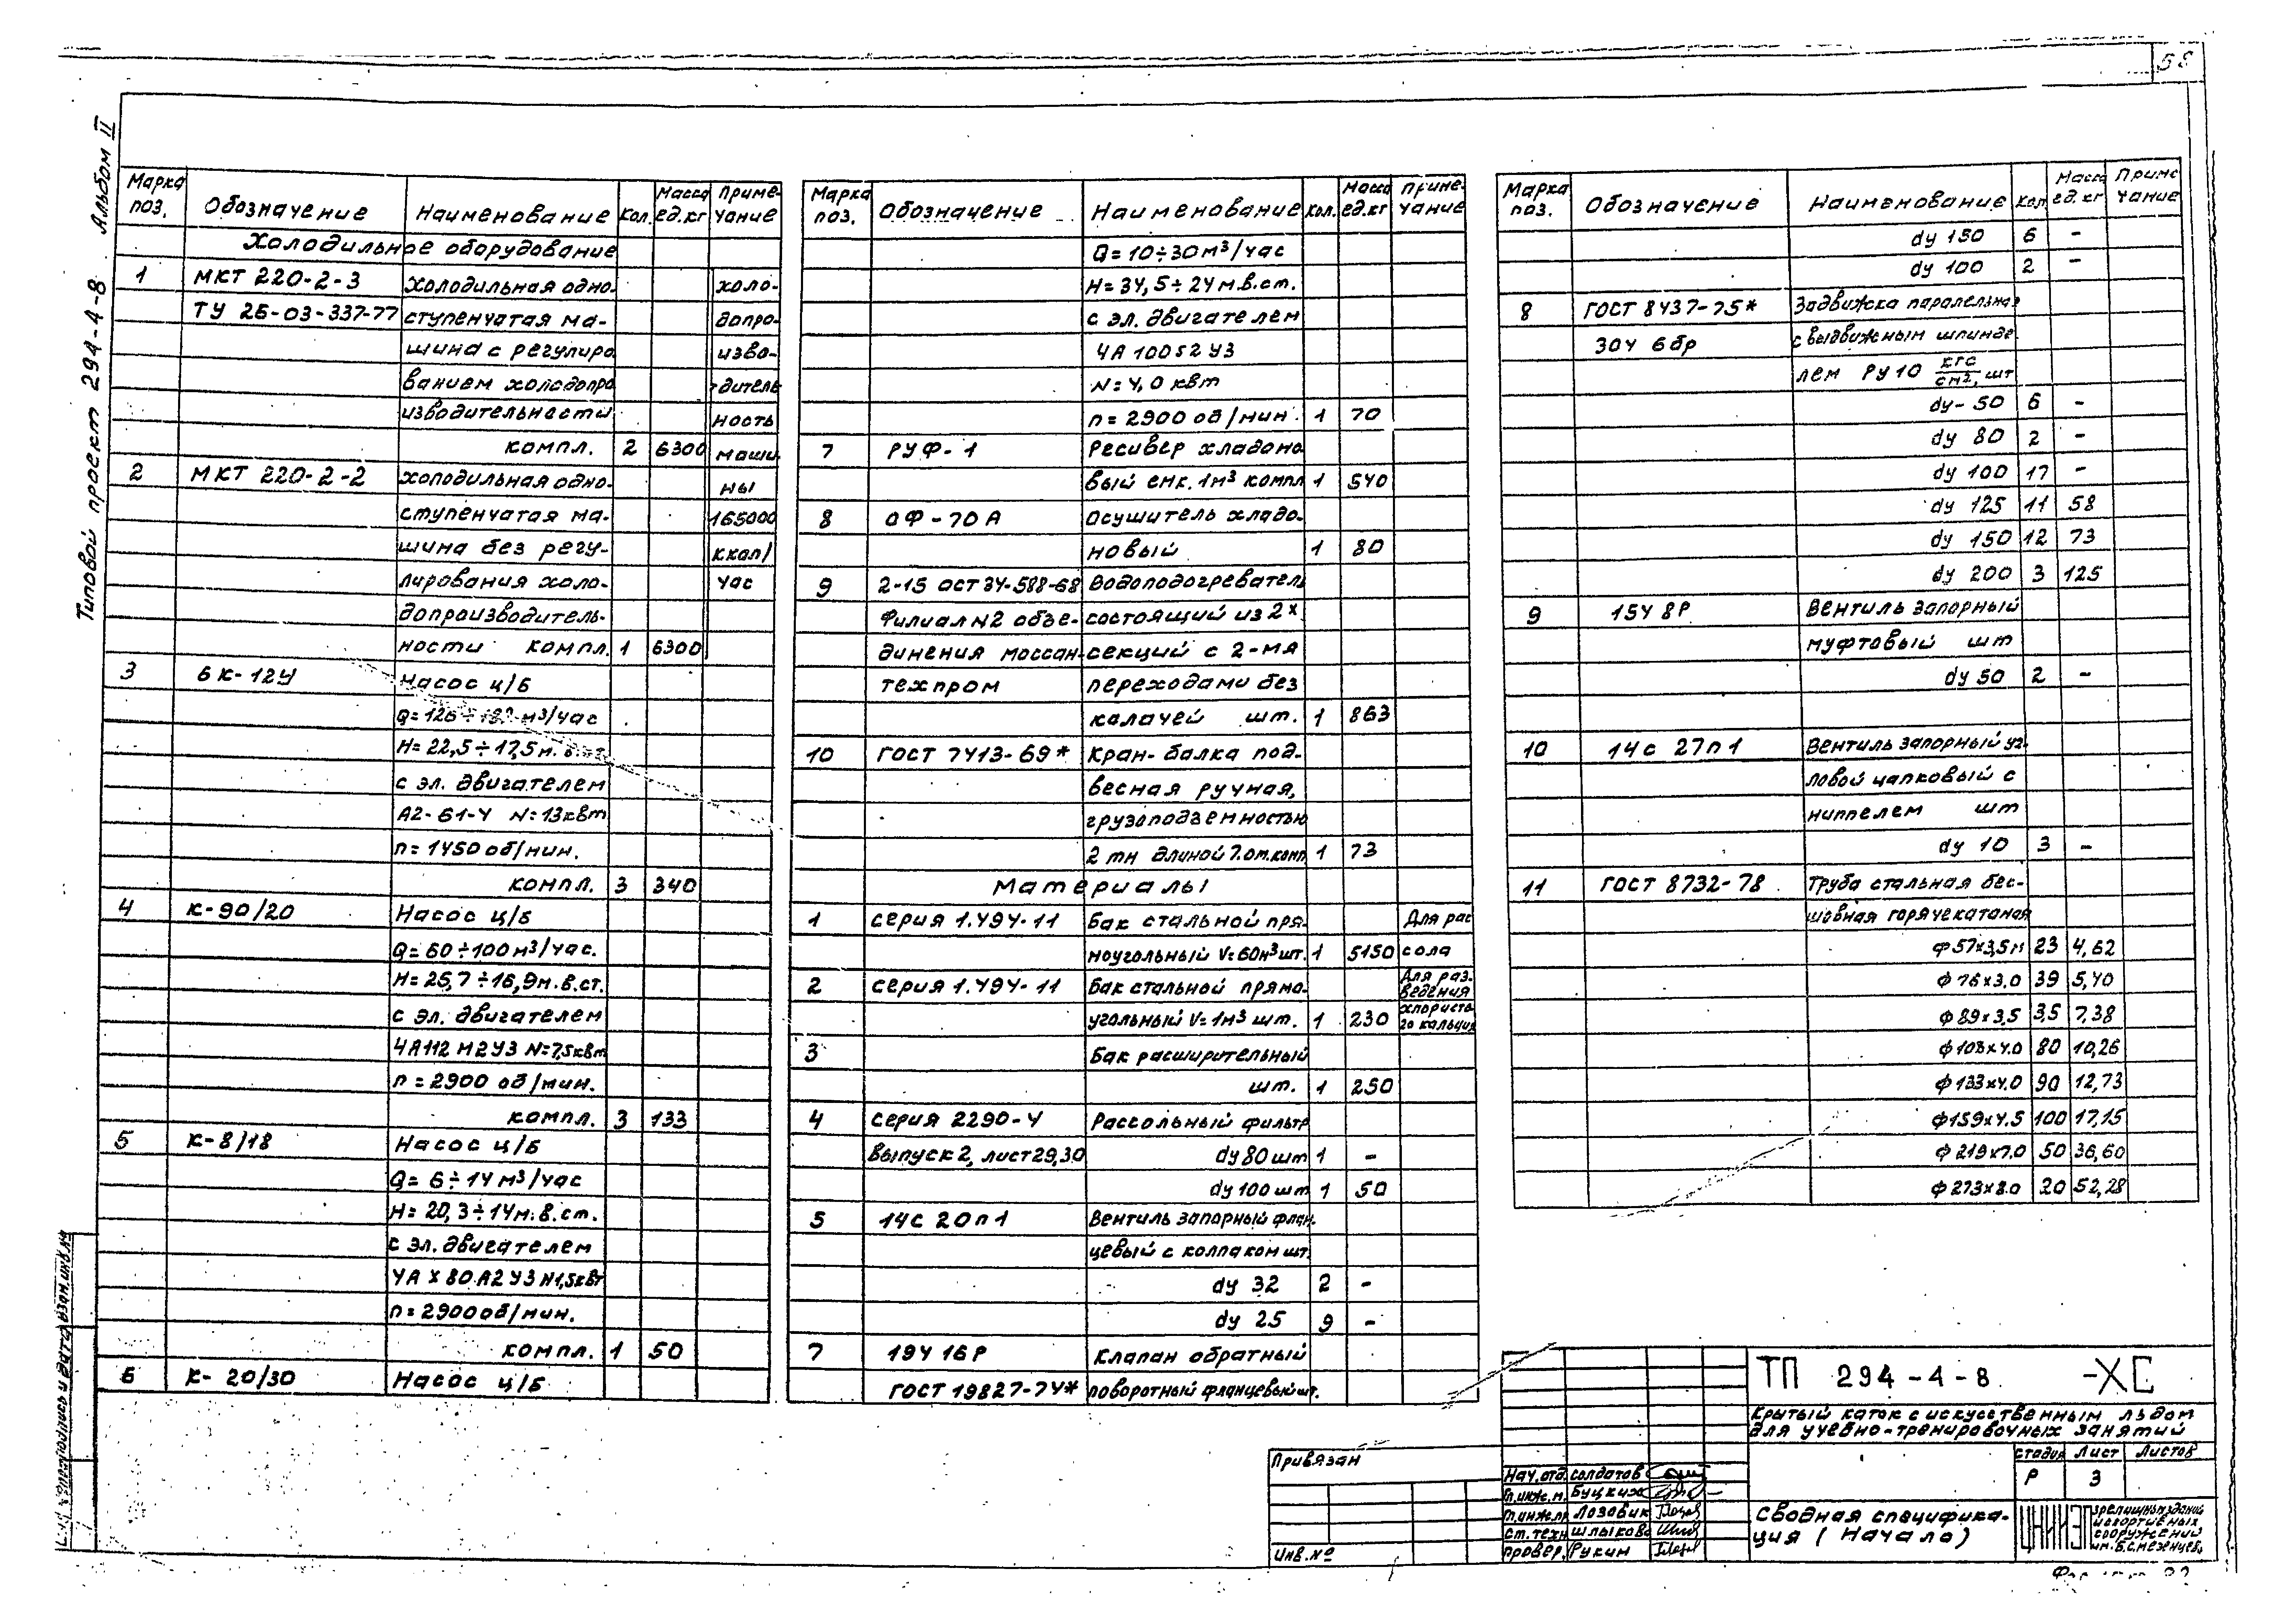 58
Типовой проект 294-4-8 Альбом II
Марка поз. Обозначение Наименование Кол. Масса ед.кг Приме-чание
Холодильное оборудование
1 МКТ 220-2-3 холодильная одно- холо-
ТУ 26-03-337-77 ступенчатая ма- допро-
шина с регулиро изво-
ванием холодопро дитель
изводительности ность
компл. 2 6300 маши
2 МКТ 220-2-2 холодильная одно- ны
ступенчатая ма- 165000
шина без регу- ккал/
лирования холо- час
допроизводитель-
ности компл. 1 6300
3 6К-12У Насос ц/б
м³/час
H=22,5÷17,5м.
с эл. двигателем
А2-61-4 N=13квт
n=1450 об/мин.
компл. 3 340
4 К-90/20 Насос ц/б
Q=60÷100м³/час.
H=25,7÷16,9м.в.ст.
с эл. двигателем
4А112М2У3 N=7,5квт
n=2900 об/мин.
компл. 3 133
5 К-8/18 Насос ц/б
Q=6÷14м³/час
H=20,3÷14м.в.ст.
с эл. двигателем
4АХ80А2У3 N1,5квт
n=2900об/мин.
компл. 1 50
6 К-20/30 Насос ц/б
Марка поз. Обозначение Наименование Кол. Масса ед.кг Приме-чание
Q=10÷30м³/час
H=34,5÷24м.в.ст.
с эл. двигателем
4А100S2У3
N=4,0 квт
n=2900 об/мин. 1 70
7 РУФ-1 Ресивер хладоно
вый емк. 1м³ компл 1 540
8 ОФ-70А Осушитель хладо-
новый 1 80
9 2-15 ОСТ 34-588-68 Водоподогреватель
Филиал №2 объе- состоящий из 2х
динения моссан- секций с 2-мя
техпром переходами без
калачей шт. 1 863
10 ГОСТ 7413-69* Кран-балка под-
весная ручная,
грузоподъемностью
2 тн длиной 7.0м.комп. 1 73
Материалы
1 серия 1.494-11 Бак стальной пря- Для рас
моугольный V=60м³ шт. 1 5150 сола
2 серия 1.494-11 Бак стальной прямо- Для раз-ведения
угольный V=1м³ шт. 1 230 хлористо-го кальция
3 Бак расширительный
шт. 1 250
4 серия 2290-4 Рассольный фильтр
Выпуск 2, лист 29,30 dу 80 шт 1 -
dу 100 шт 1 50
5 14с 20п1 Вентиль запорный флан.
цевый с колпаком шт.
dу 32 2 -
dу 25 9 -
7 19ч 16Р Клапан обратный
ГОСТ 19827-74* поворотный фланцевый шт.
Марка поз. Обозначение Наименование Кол Масса ед.кг Приме чание
dу 150 6 -
dу 100 2 -
8 ГОСТ 8437-75* Задвижка паралельная
30ч 6бр с выдвижным шпинде-
лем РУ10 кгс/см², шт
dу-50 6 -
dу 80 2 -
dу 100 17 -
dу 125 11 58
dу 150 12 73
dу 200 3 125
9 15ч 8Р Вентиль запорный
муфтовый шт
dу 50 2 -
10 14с 27п1 Вентиль запорный уг-
ловой цапковый с
ниппелем шт
dу 10 3 -
11 ГОСТ 8732-78 Труба стальная бес-
шовная горячекатаная
ф57х3,5м 23 4,62
ф76х3.0 39 5,40
ф89х3,5 35 7,38
ф108х4.0 80 10,26
ф133х4.0 90 12,73
ф159х4.5 100 17,15
ф219х7.0 50 36,60
ф273х8.0 20 52,28
ТП 294-4-8 -ХС
Крытый каток с искусственным льдом
для учебно-тренировочных занятий
Стадия Лист Листов
Р 3
Сводная специфика-
ция (Начало)
ЦНИИЭП зрелищных зданий
и спортивных
сооружений
им. Б.С.Мезенцева
Привязан
Инв.№
Нач.отд. Солдатов
Гл.инж.м. Буцких
Гл.инж.пр Лозовик
Ст.техн Шлыкова
Провер. Рукин
Подпись и дата Взам.инв.№